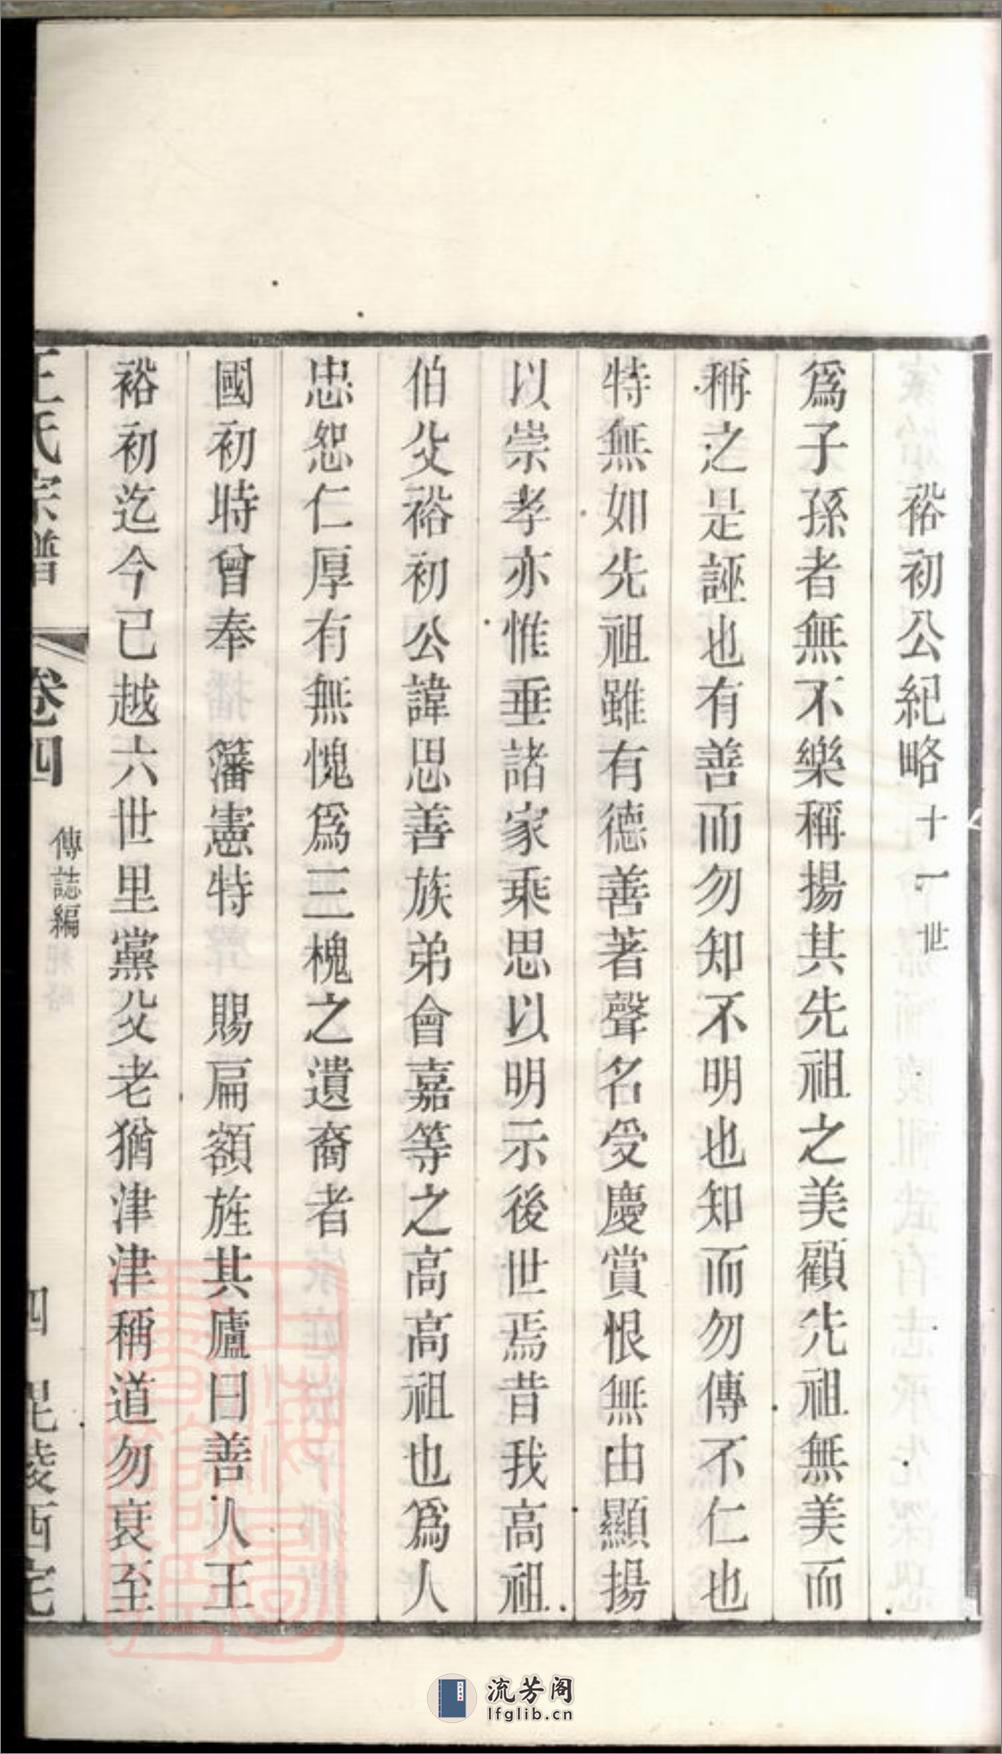 裕初公紀略十一世
爲子孫者無不樂稱揚其先祖之美顧先祖無美而
稱之是誣也有善而勿知不明也知而勿傳不仁也
特無如先祖雖有德善著聲名受慶賞恨無由顯揚
以崇孝亦惟垂諸家乘思以明示後世焉昔我高祖
伯父裕初公諱思善族弟會嘉等之高高祖也爲人
忠恕仁厚有無愧爲三槐之遺裔者
國初時曾奉 籓憲特 賜扁額旌其廬曰善人王
裕初迄今已越六世里黨父老猶津津稱道勿衰至
王氏宗譜 卷四 傳誌編 四 毘陵西宅
流芳阁
lfglib.cn